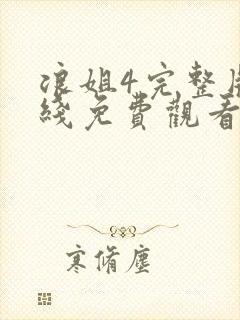 浪姐4完整版
綫免費觀看
寒脩塵